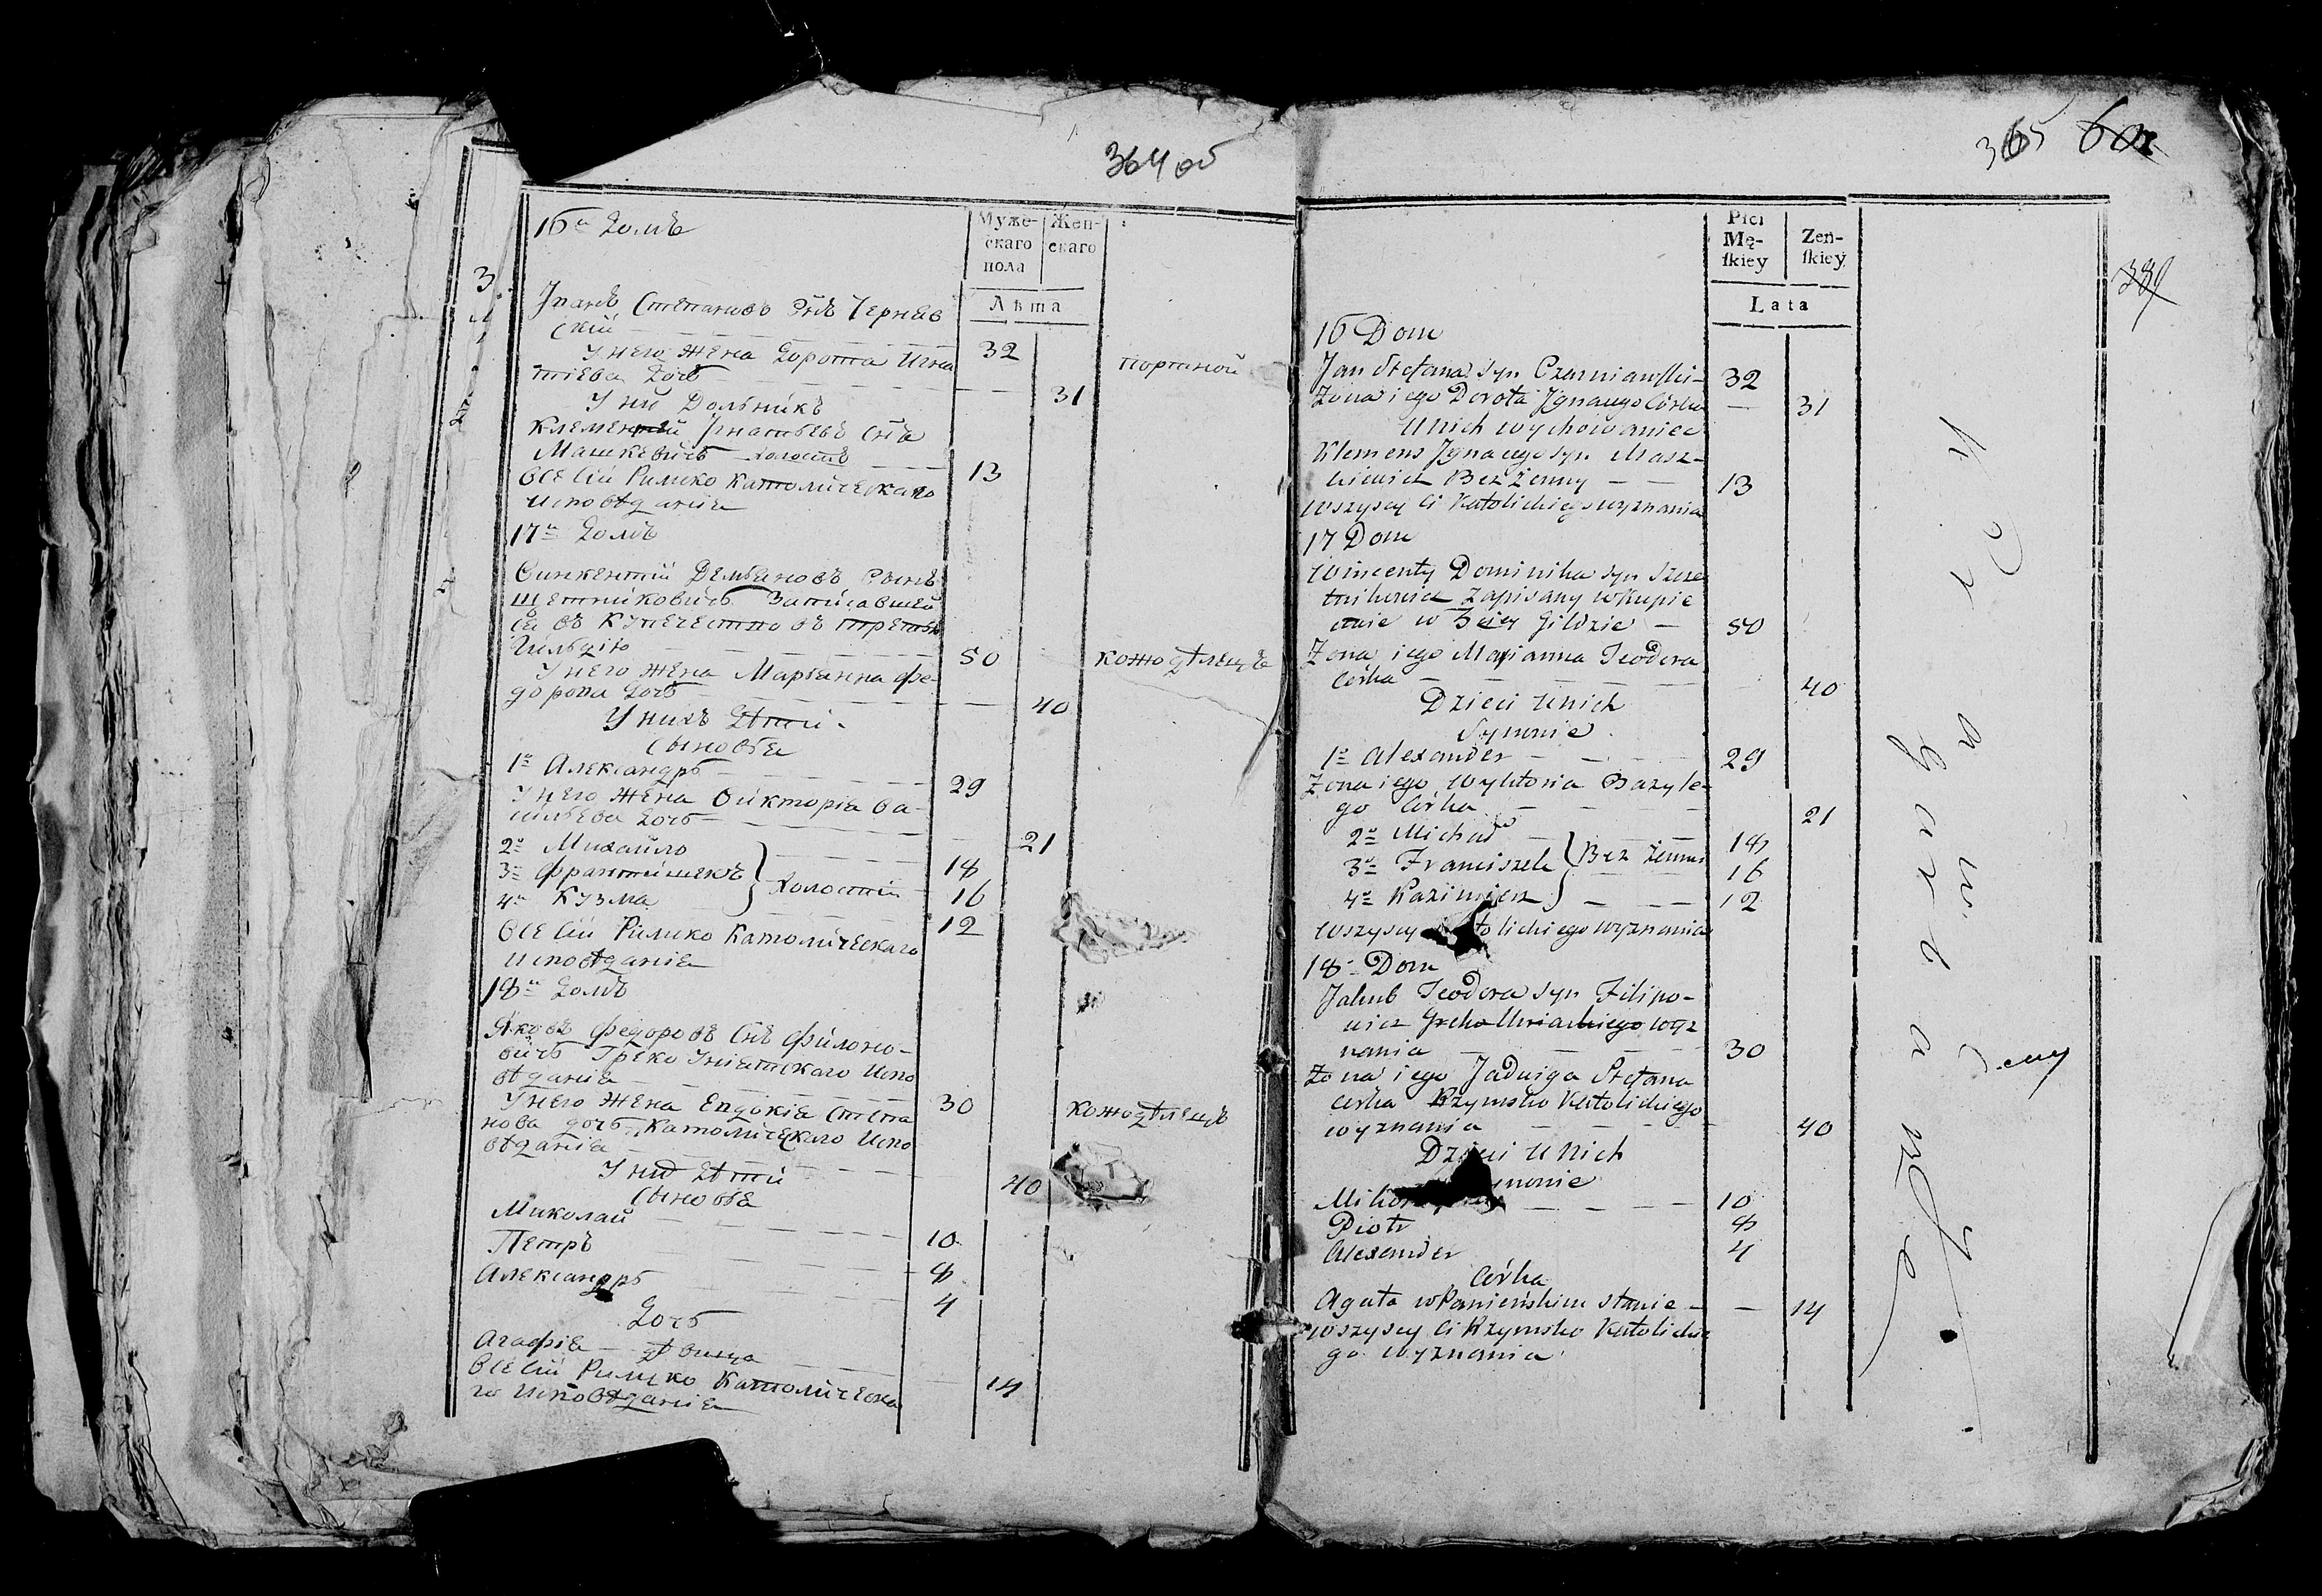 364 об
16й Домъ
Муже-
скаго
пола
Жен-
скаго
Лѣта
Иванъ Степановъ Снъ Черняв
скій
32
портной
У него жена Дорота Игна
тіева Дочь
31
У них Дольникъ
Клементей Игнатьевъ Снъ
Машкевичь холостъ
13
Все сіи Римско Католическаго
исповѣданія
17й Домъ
Винкентій Демьяновъ Сынъ
Щетниковичь Записавшей
ся въ купечество въ третью
Гильдію
50
кожодѣлецъ
У него жена Марьянна Фе-
дорова Дочь
40
У нихъ Дѣти
Сыновья
1й Александръ
29
У него жена Викторія Ва-
сильева Дочь
21
2й Михайло
18
3й Франтишекъ
холостіи
16
4й Кузма
12
Все сіи Римско Католическаго
исповѣданія
18й Домъ
Яковъ Федоровъ Снъ Филоно-
вичь Греко Уніатскаго испо
вѣданія
30
кожодѣлецъ
У него жена Евдокія Степа
нова дочь Католическаго испо
вѣданія
40
У них Дѣти
Сыновья
Миколай
10
Петръ
8
Александръ
4
Дочь
Агафія дѣвица
14
Все сіи Римско Католическа
го исповѣданія
365
Płci
Mę-
skiey
Zeń-
skiey
Lata
389
16 Dom
Jan Stefana syn Czerniawski
32
Zona iego Dorota Ignacego Córka
31
U Nich wychowaniec
Klemens Ignacego syn Masz-
kiewicz Bez Zenny
13
Wszyscy Ci Katolickiego wyznania
17 Dom
Wincenty Dominika syn Szcze
tnikowicz Zapisany w kupie
ctwie w 3ciey Gildzie
50
Zona iego Maryianna Teodora
Córka
40
Dzieci U Nich
Synowie
1o Alexander
29
Zona iego Wyktoria Bazyle-
go Córka
21
2o Michał
18
3o Franciszek
Bez Zenni
16
4o Kazimierz
12
Wszyscy Katolickiego wyznania
18 Dom
Jakub Teodora syn Filipo-
wicz Greko Uniackiego wyz
nania
30
Zona iego Jadwiga Stefana
Córka Rzymsko Katolickiego
wyznania
40
Dzieci U Nich
Synowie
10
Piotr
8
Alexander
4
Córka
Agata w Panieńskim Stanie
14
Wszyscy Ci Rzymsko Katolickie
go wyznania